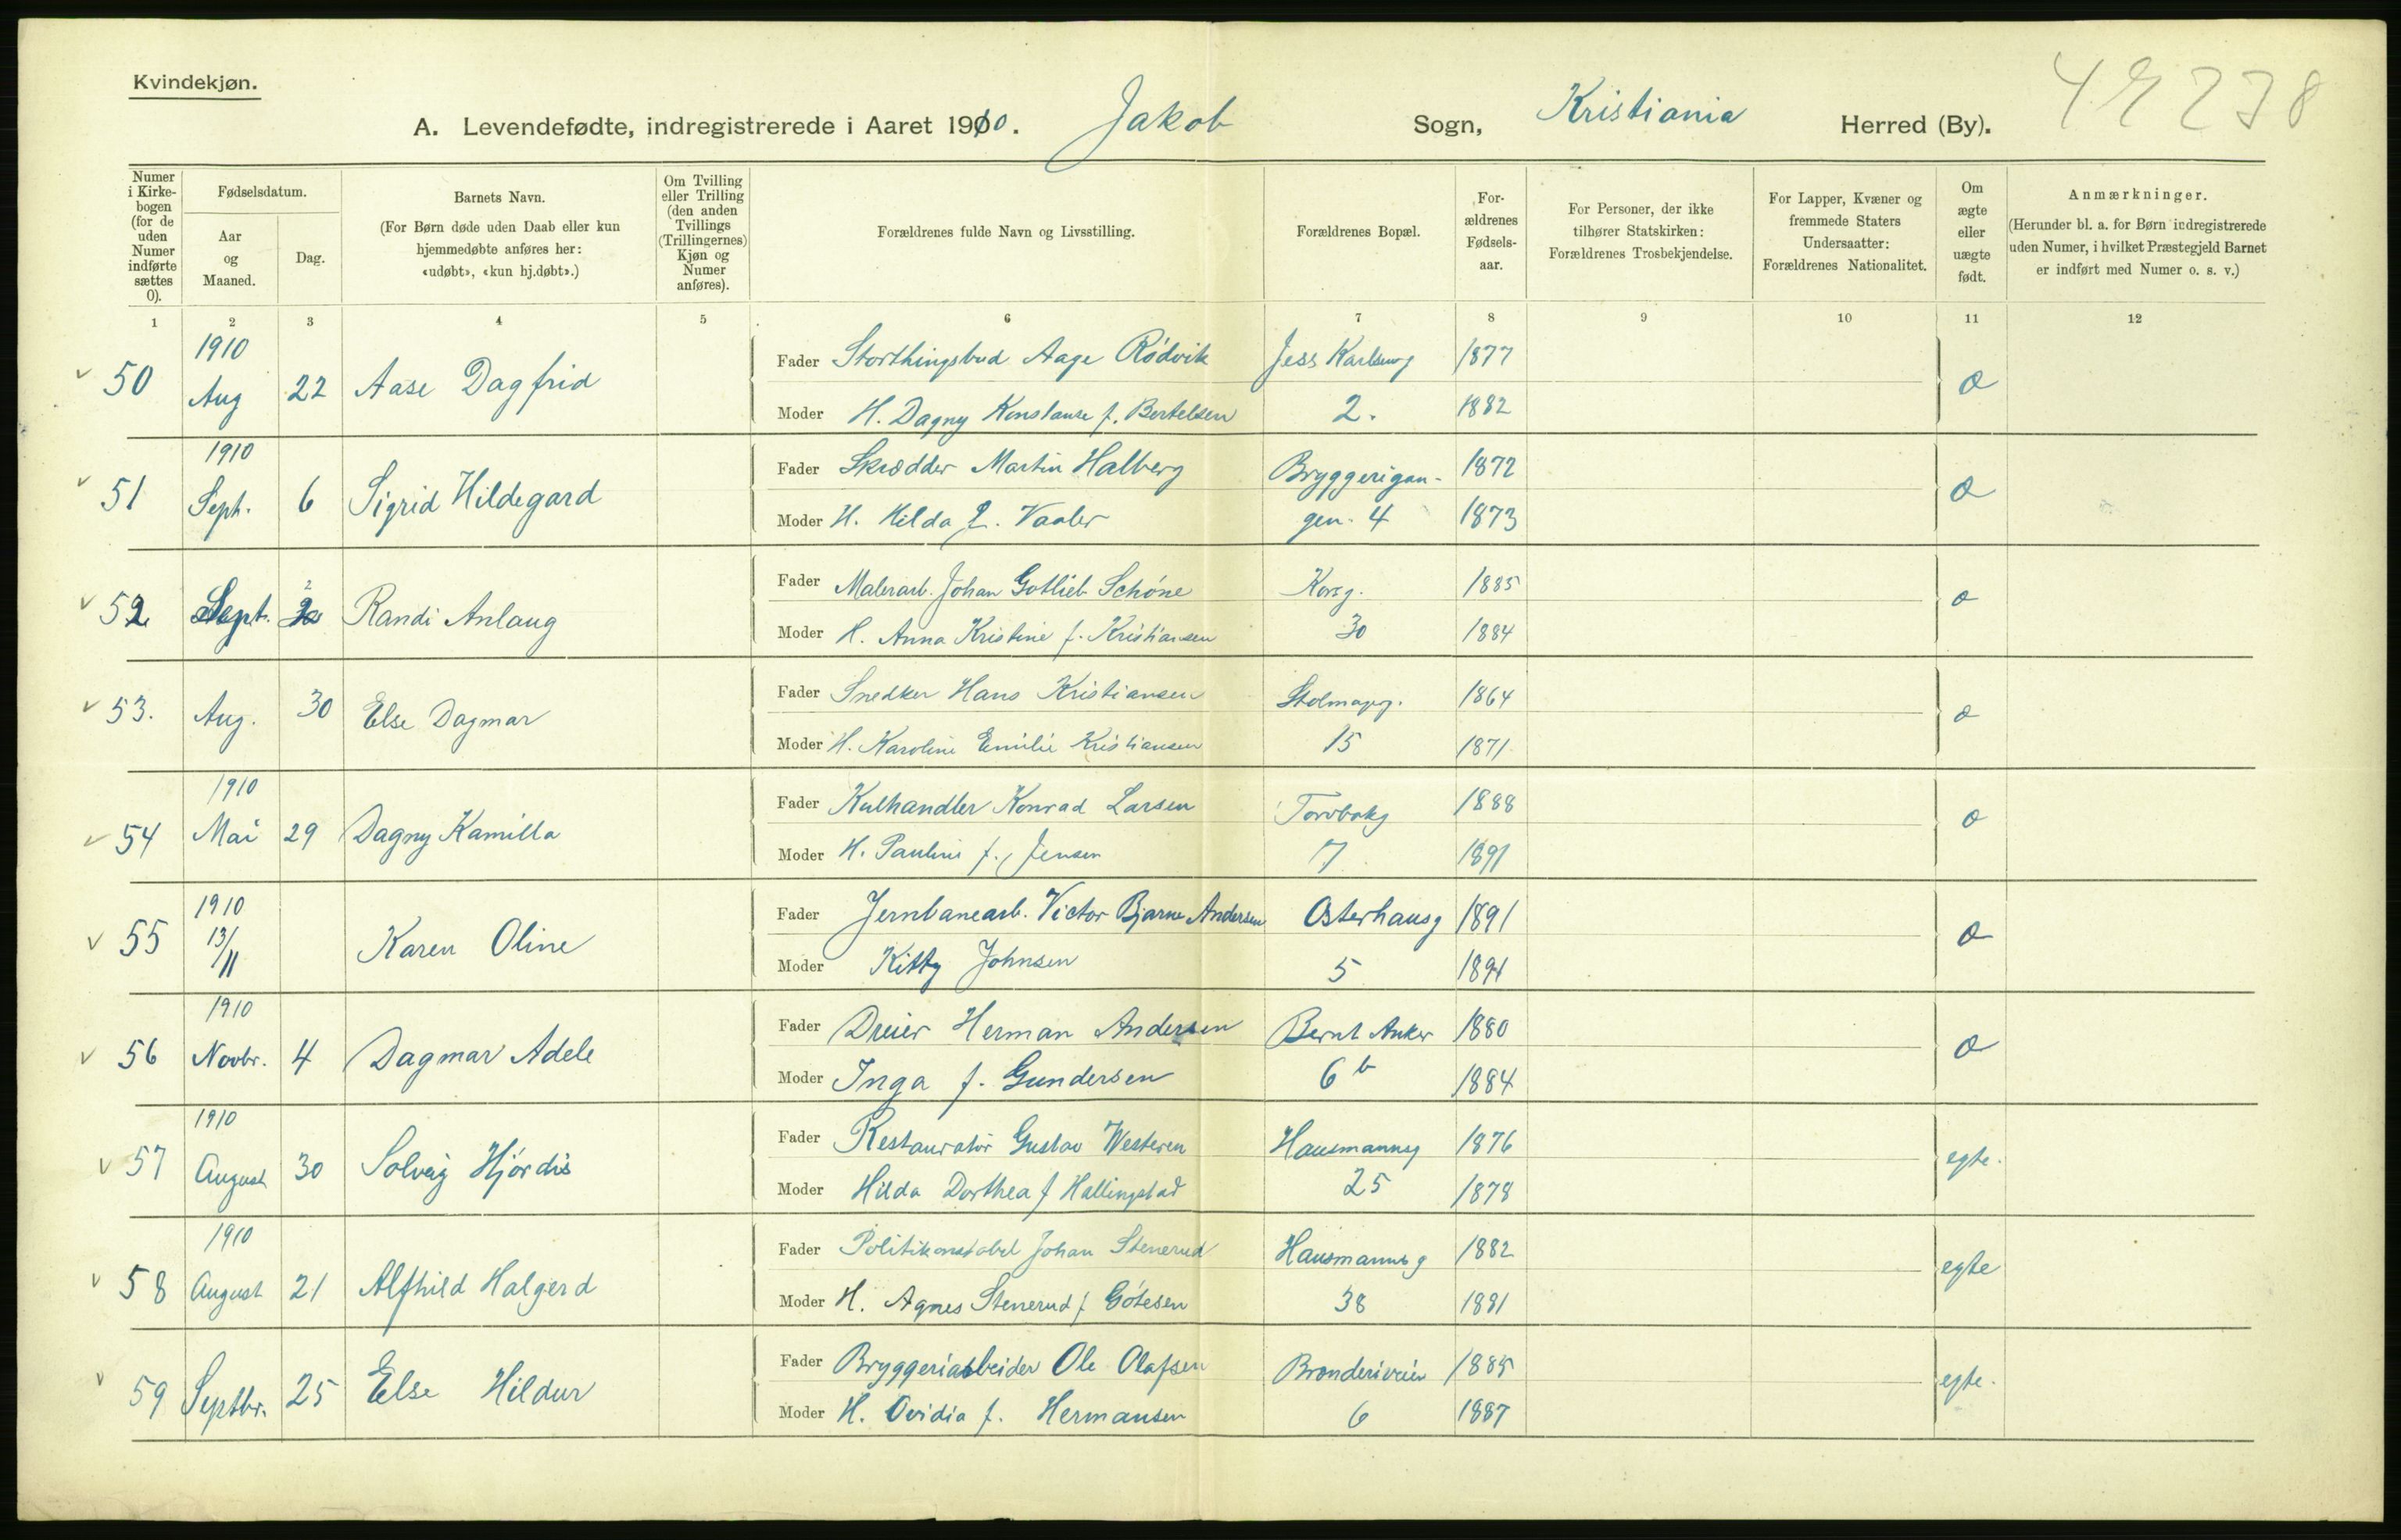 Kvindekjøn.
A. Levendefødte, indregistrerede i Aaret 1910. Jakob Sogn, Kristiania Herred (By).
Numer i Kirkebogen (for de uden Numer indførte sættes 0).
Fødselsdatum.
Aar og Maaned.
Dag.
Barnets Navn.
(For Børn døde uden Daab eller kun hjemmedøbte anføres her: «udøbt», «kun hj.døbt».)
Om Tvilling eller Trilling (den anden Tvillings (Trillingernes) Kjøn og Numer anføres).
Forældrenes fulde Navn og Livsstilling.
Forældrenes Bopæl.
Forældrenes Fødselsaar.
For Personer, der ikke tilhører Statskirken: Forældrenes Trosbekjendelse.
For Lapper, Kvæner og fremmede Staters Undersaatter: Forældrenes Nationalitet.
Om ægte eller uægte født.
Anmærkninger.
(Herunder bl. a. for Børn indregistrerede uden Numer, i hvilket Præstegjeld Barnet er indført med Numer o. s. v.)
1 2 3 4 5 6 7 8 9 10 11 12
50 1910 Aug 22 Aase Dagfrid
Fader Storthingsbud Aage Rödvik Jess Karlsensg 1877
Moder H. Dagny Konstanse f. Bertelsen 2. 1882
51 1910 Sept. 6 Sigrid Hildegard
Fader Skrædder Martin Halberg Bryggerigan- 1872
Moder H. Hilda Vaaler gen. 4 1873
52 Sept. 2 Randi Anlaug
Fader Malerarb. Johan Gotlieb Schöne Korsg. 1885
Moder H. Anna Kristine f. Kristiansen 30 1884
53. Aug. 30 Else Dagmar
Fader Snedker Hans Kristiansen 1864
Moder H. Karoline Emilie Kristiansen 15 1871
54 1910 Mai 29 Dagny Kamilla
Fader Kulhandler Konrad Larsen Torvbakg 1888
Moder H. Pauline f. Jensen 7 1891
55 1910 13/11 Karen Oline
Fader Jernbanearb. Victor Bjarne Andersen Osterhausg 1891
Moder Kitty Johnsen 5 1891
56 1910 Novbr. 4 Dagmar Adele
Fader Dreier Herman Andersen Bernt Anker 1880
Moder Inga f. Gundersen 6 b 1884
57 1910 August 30 Solveig Hjördis
Fader Restauratör Gustav Westeren Hausmannsg 1876 egte.
Moder Hilda Dorthea f Hallingstad 25 1878
58 1910 August 21 Alfhild Halgerd
Fader Politikonstabel Johan Stenerud Hausmannsg 1882 egte
Moder H. Agnes Stenerud f Götesen 38 1881
59 Septbr. 25 Else Hildur
Fader Bryggeriarbeider Ole Olafsen Brenderiveien 1885 egte.
Moder H. Ovidia f. Hermansen 6 1887